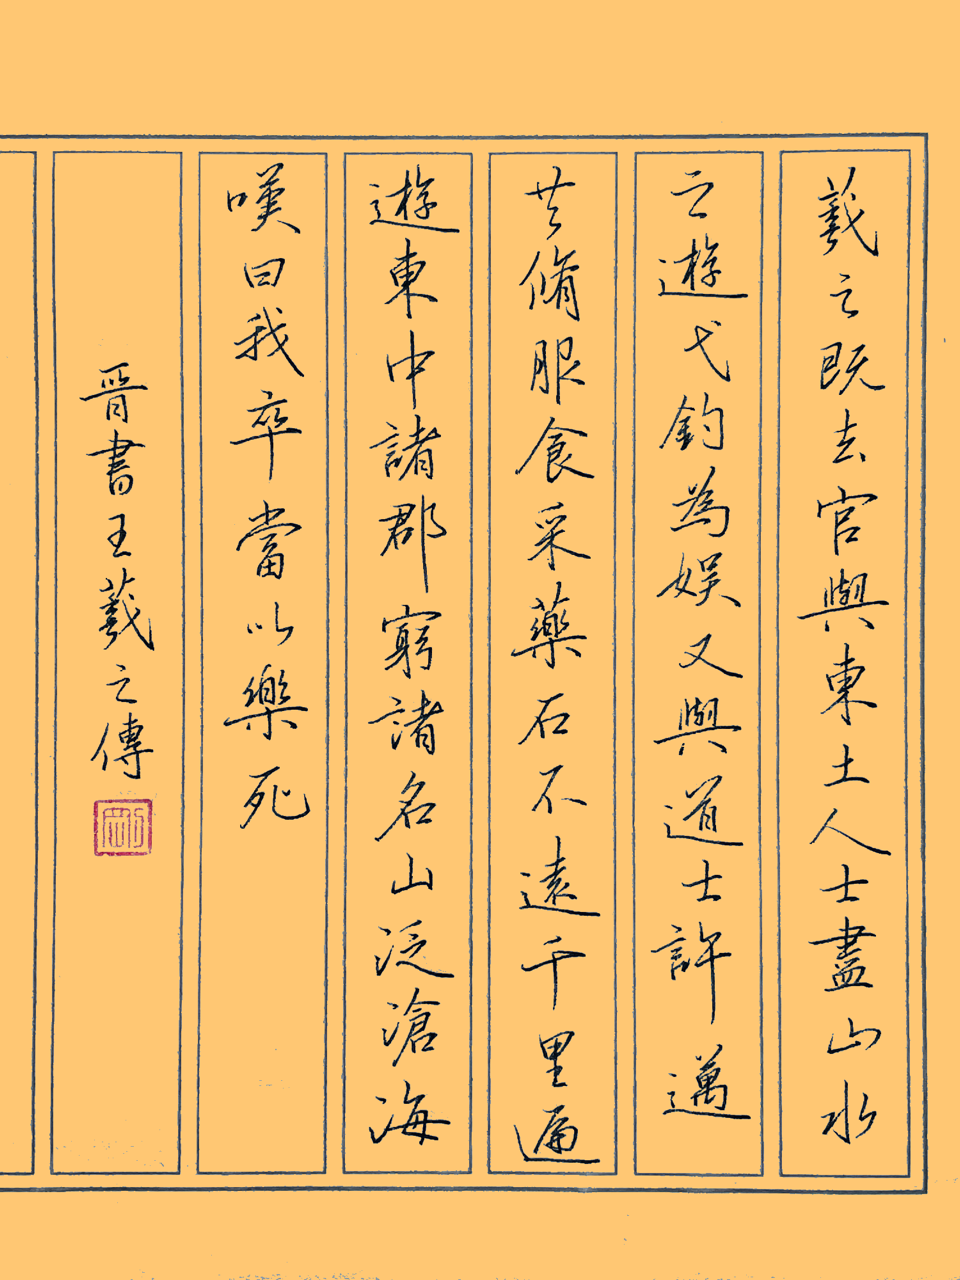 羲之既去官與東土人士盡山水
之遊弋釣為娛又與道士許邁
共脩服食采藥石不遠千里遍
遊東中諸郡窮諸名山泛滄海
嘆曰我卒當以樂死
晋書王羲之傳